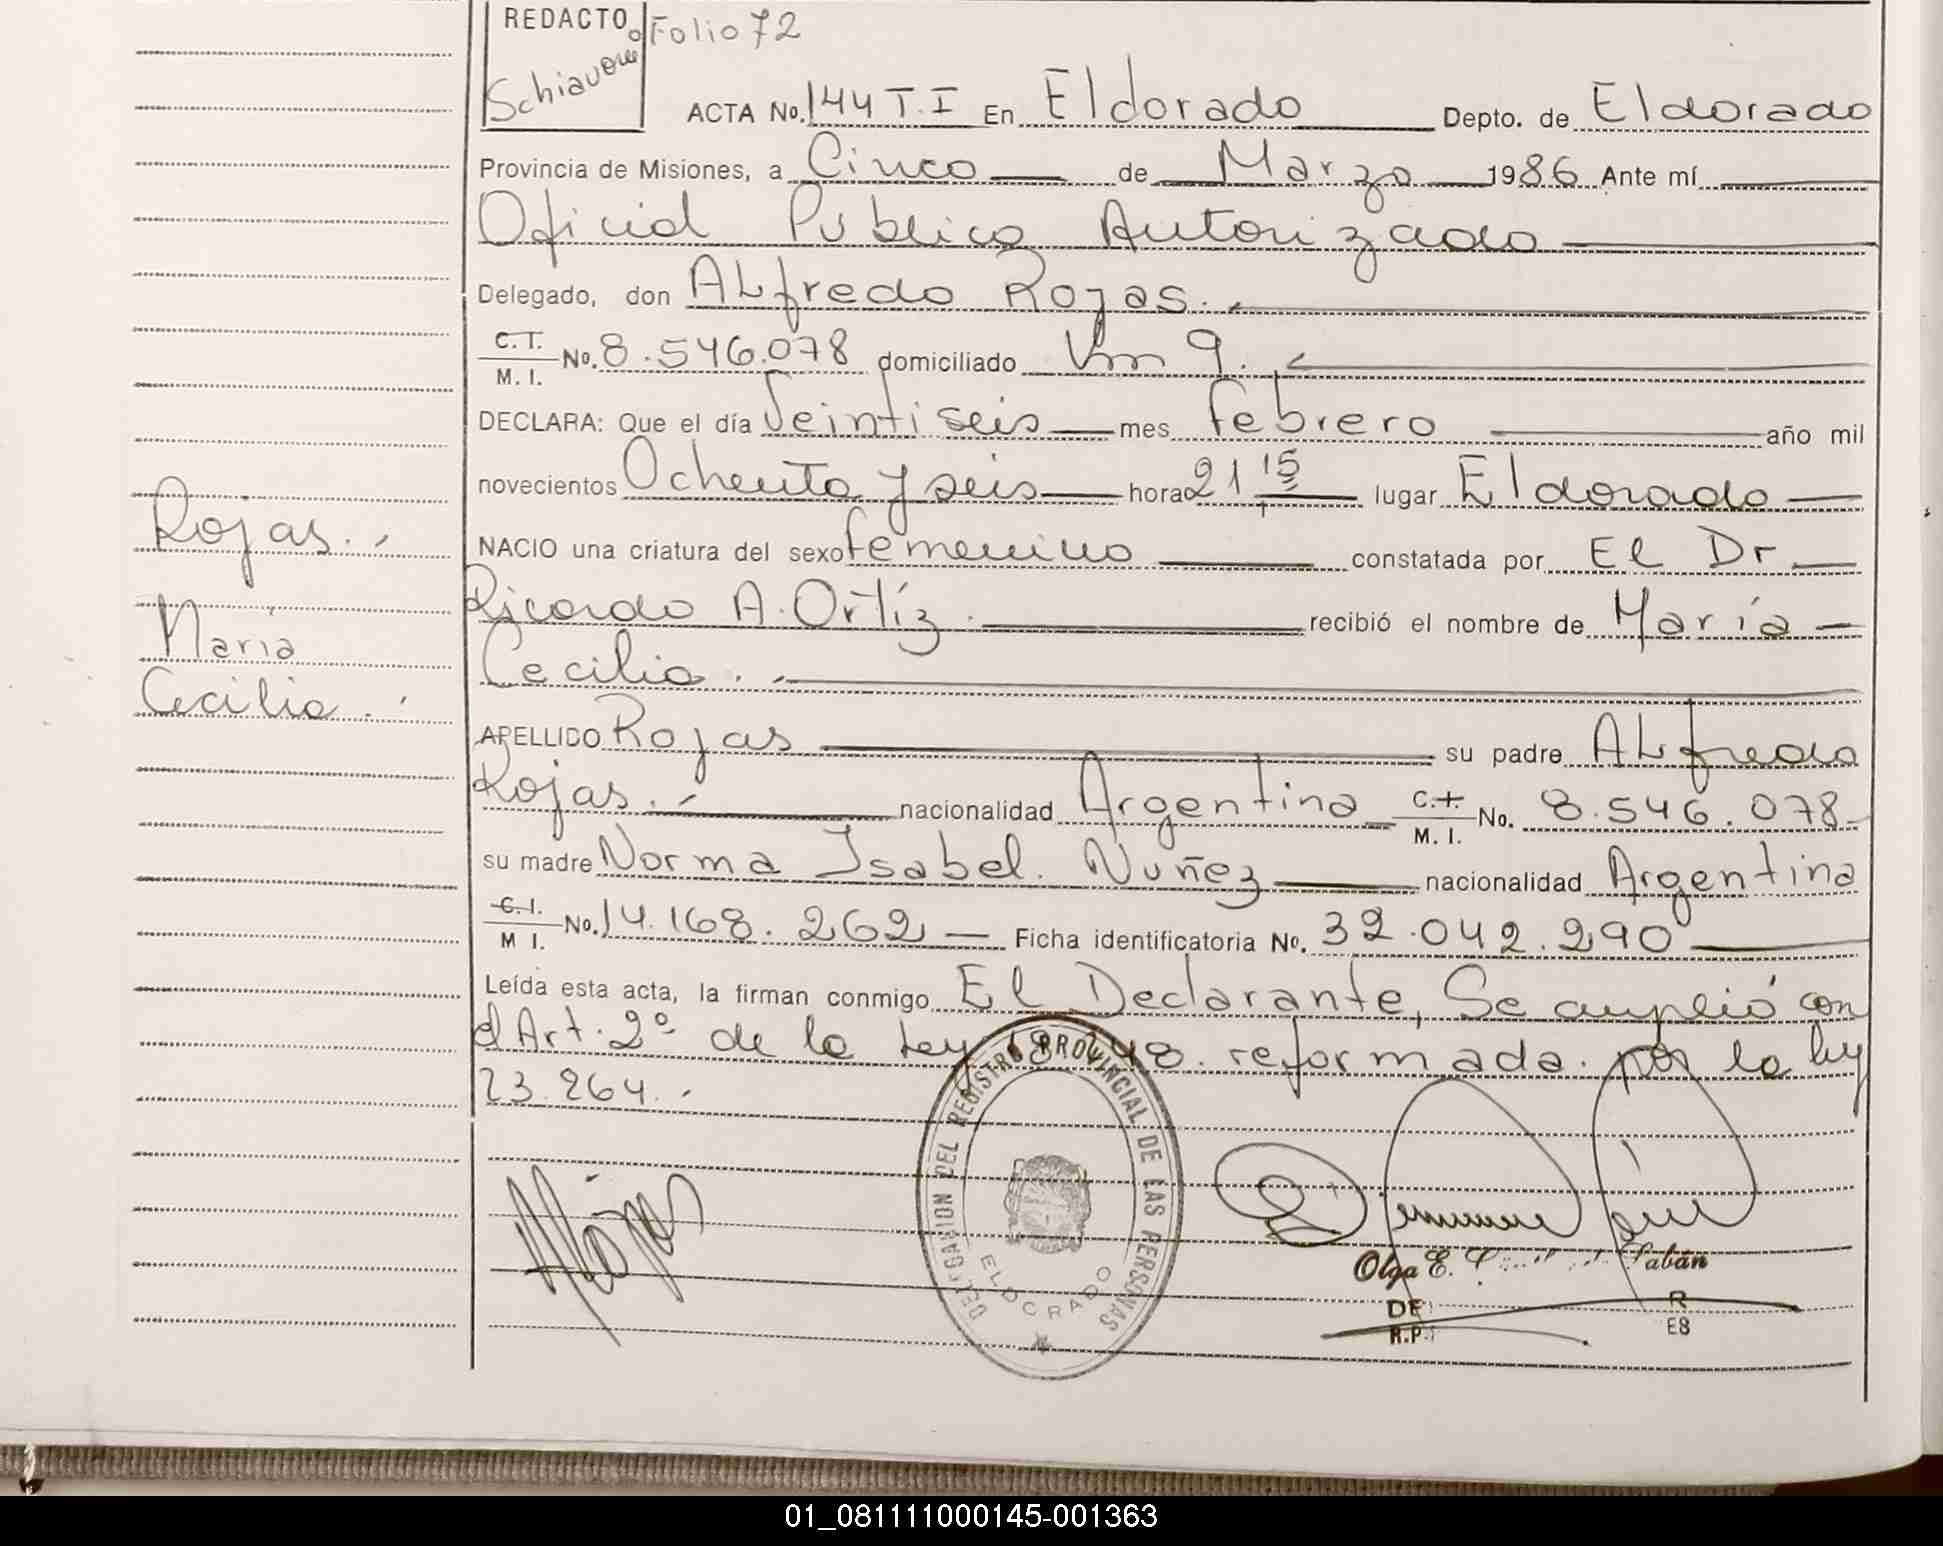 REDACTO
Folio 72
Schiavone
ACTA No. 144 T.I En Eldorado Depto. de Eldorado
Provincia de Misiones, a Cinco de Marzo 1986 Ante mí
Oficial Publico Autorizado
Delegado, don ALfredo Rojas.
C.I. M. I. No. 8.546.078 domiciliado Km 9.
DECLARA: Que el día Veintiseis mes Febrero año mil
novecientos Ochenta y seis hora 21 15 lugar Eldorado
NACIO una criatura del sexo femenino constatada por El Dr
Ricardo A. Ortíz. recibió el nombre de María
Cecilia.
APELLIDO Rojas su padre ALfredo
Rojas. nacionalidad Argentina C.I. M. I. No. 8.546.078
su madre Norma Isabel Nuñez nacionalidad Argentina
C.I. M I. No. 14.168.262 Ficha identificatoria No. 32.042.290
Leída esta acta, la firman conmigo El Declarante, Se cumplió con
el Art. 2º de la Ley reformada por la ley
23.264.
Rojas.
María
Cecilia.
DELEGACION DEL REGISTRO PROVINCIAL DE LAS PERSONAS
ELDORADO
Olga E. Pabán
01_081111000145-001363